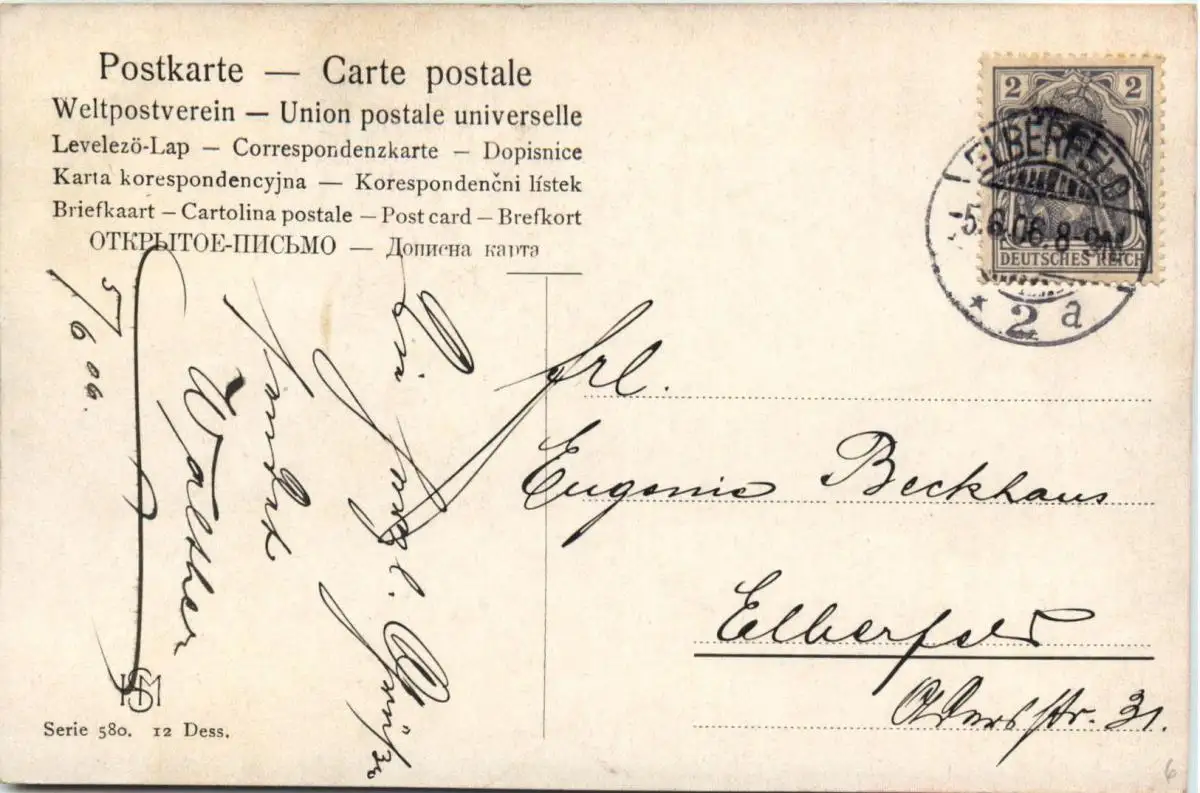 Postkarte — Carte postale
Weltpostverein — Union postale universelle
Levelezö-Lap — Correspondenzkarte — Dopisnice
Karta korespondencyjna — Korespondenčni lístek
Briefkaart — Cartolina postale — Post card — Brefkort
ОТКРЫТОЕ-ПИСЬМО — Дописна карта
2 2
DEUTSCHES REICH
ELBERFELD
5.6.06. 8-9N
* 2 a
5/6 06.
Walther
Frl.
Eugenie Beckhaus
Elberfeld
str. 31.
HSM
Serie 580. 12 Dess.
6